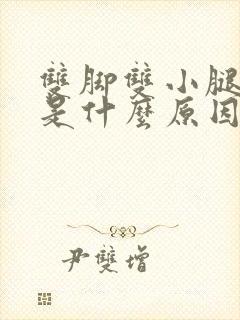 雙脚雙小腿
是什麼原因
尹雙增